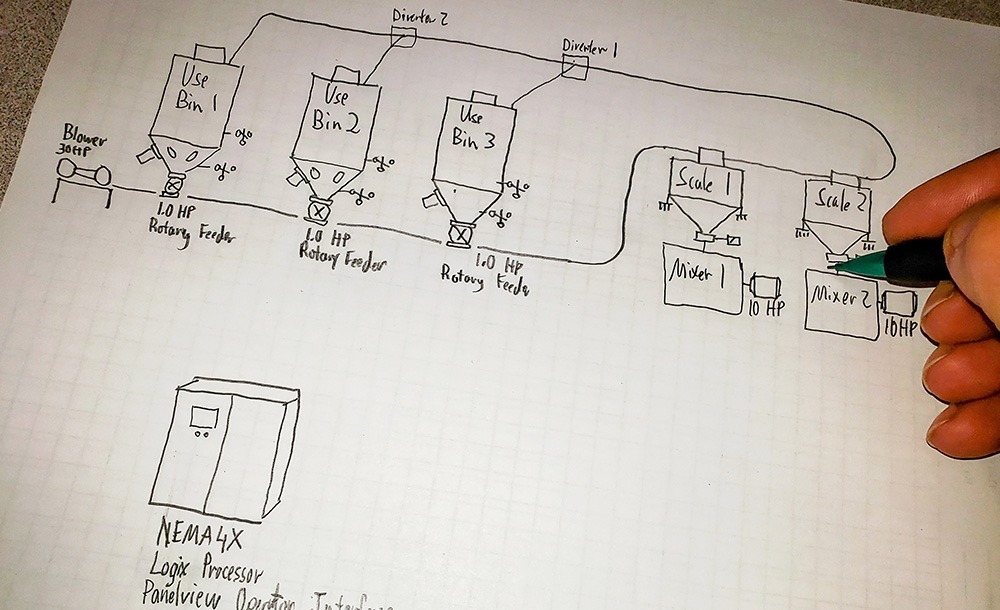 Diverter 2
Diverter 1
Use
Bin 1
Use
Bin 2
Use
Bin 3
Blower
30 HP
1.0 HP
Rotary Feeder
1.0 HP
Rotary Feeder
1.0 HP
Rotary Feeder
Scale 1
Scale 2
Mixer 1
10 HP
Mixer 2
10 HP
NEMA4X
Logix Processor
Panelview Operator Interface